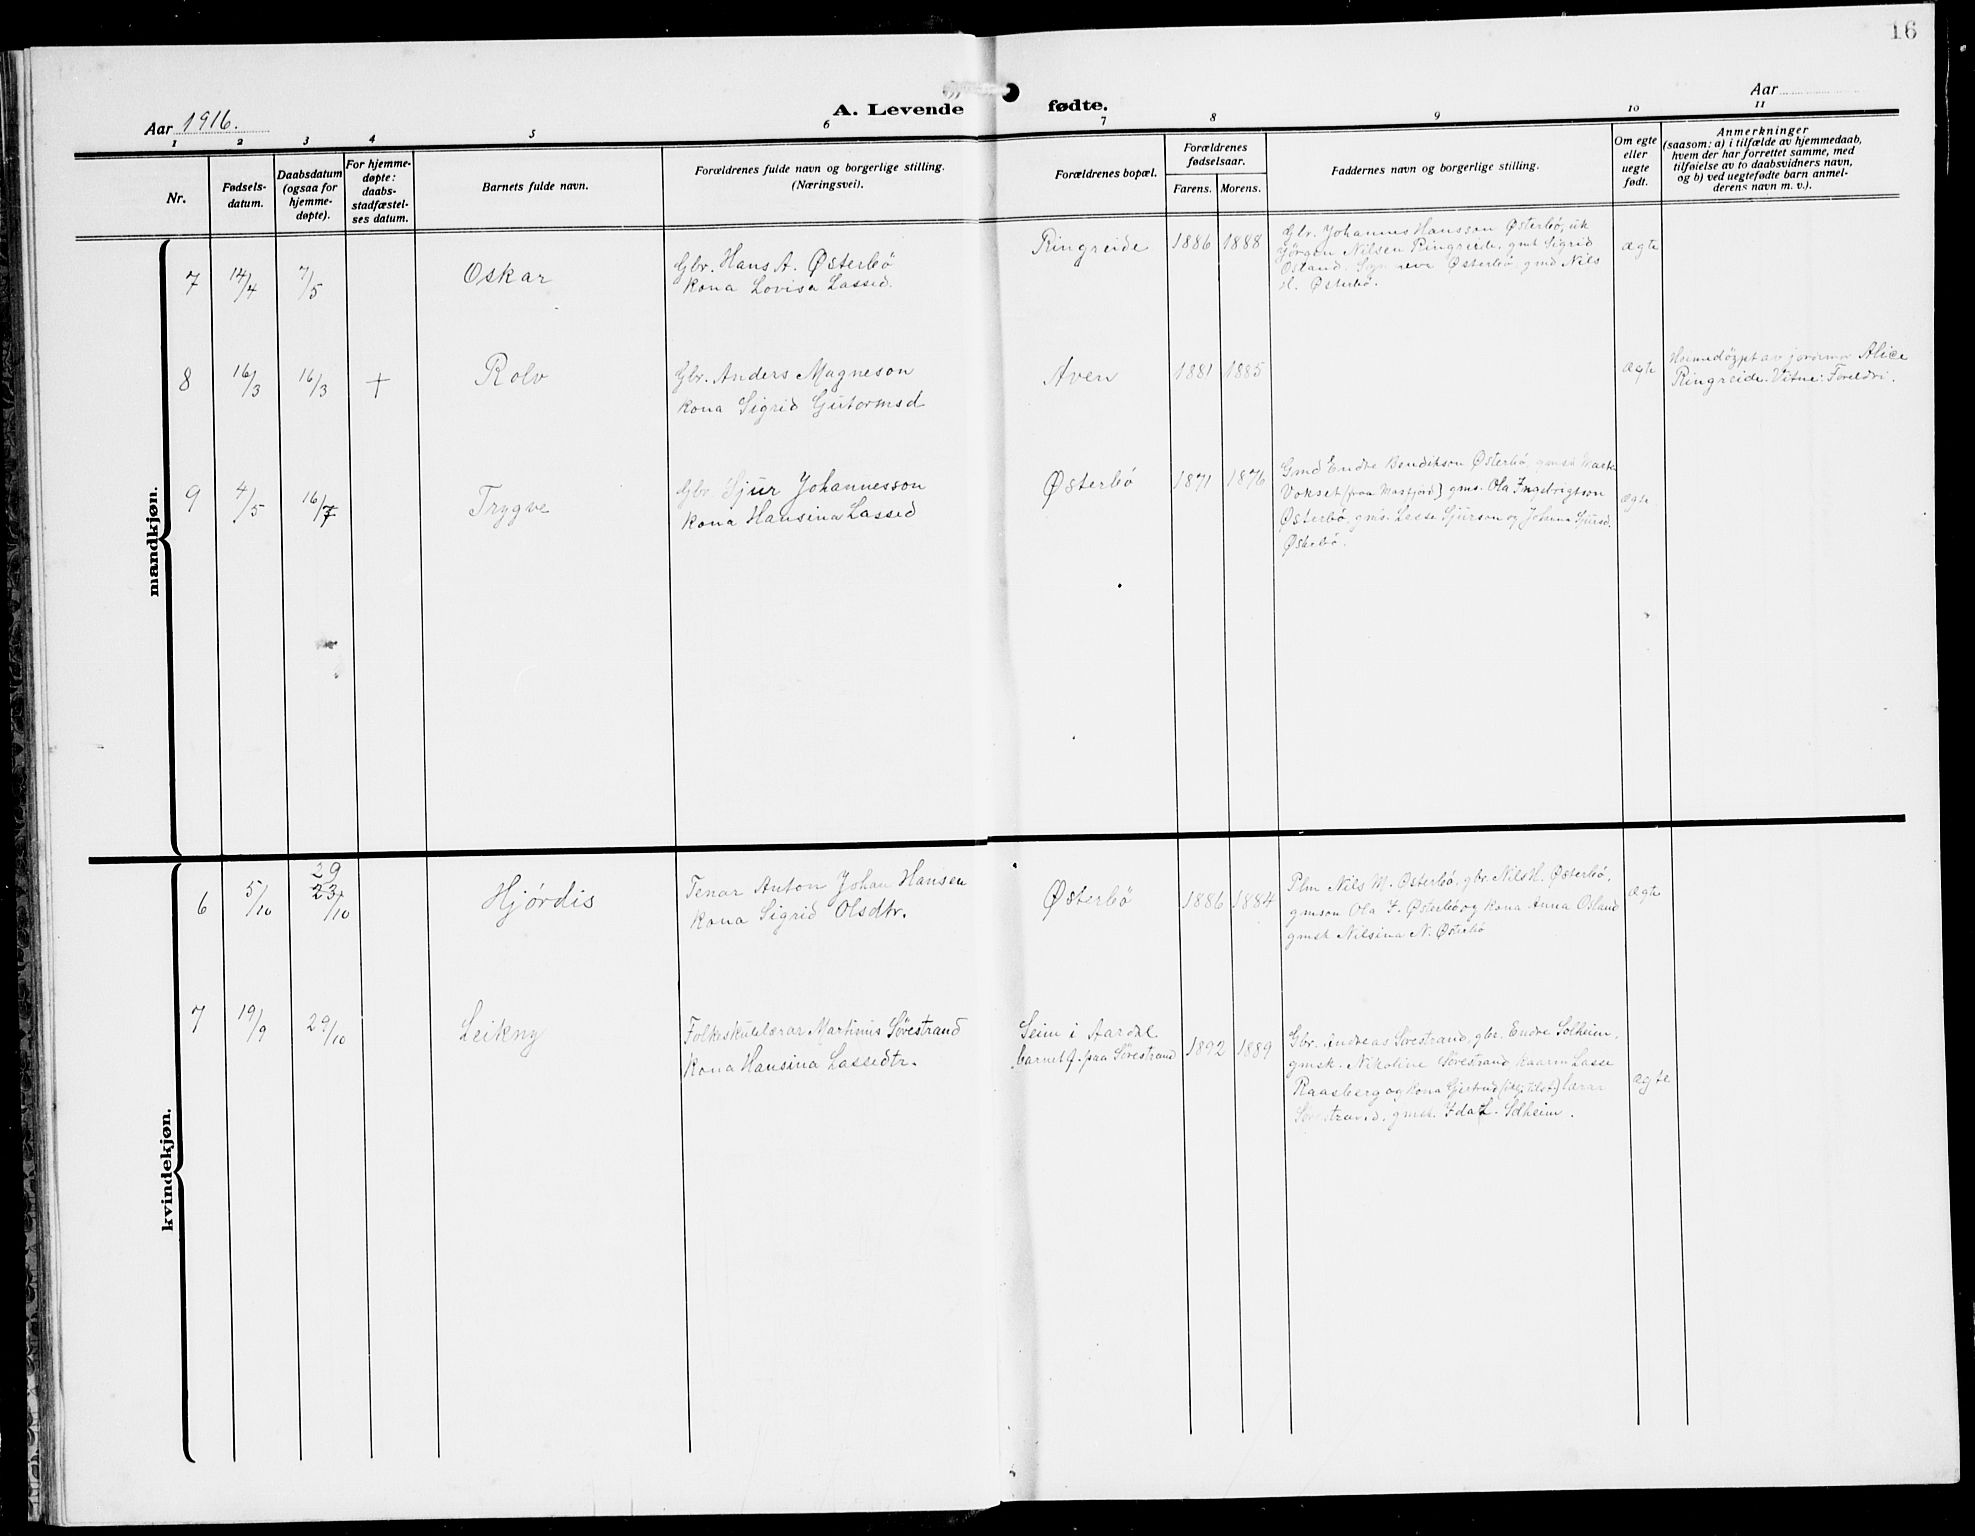 16
Aar 1916.
A. Levende fødte.
Aar
1 2 3 4 5 6 7 8 9 10 11
Nr.
Fødsels-
datum.
Daabsdatum
(ogsaa for
hjemme-
døpte).
For hjemme-
døpte:
daabs-
stadfæstel-
ses datum.
Barnets fulde navn.
Forældrenes fulde navn og borgerlige stilling.
(Næringsvei).
Forældrenes bopæl.
Forældrenes
fødselsaar.
Farens. Morens.
Faddernes navn og borgerlige stilling.
Om egte
eller
uegte
født.
Anmerkninger
(saasom: a) i tilfælde av hjemmedaab,
hvem der har forrettet samme, med
tilføielse av to daabsvidners navn,
og b) ved uegtefødte barn anmel-
derens navn m. v.).
mandkjøn.
7 14/4 7/5 Oskar
Gbr. Hans A. Østerbö
kona Lovisa Lassed.
Ringreide 1886 1888
Gbr. Johannes Hansson Østerbø, uk
Jørgen Nilsen Ringreide, gmk Sigrid
Osland. Østerbø, gmd Nils
H. Østerbø.
ægte
8 16/3 16/3 + Rolv
Gbr. Anders Magneson
kona Sigrid Gutormsd
Aven 1881 1885
ægte
Heimedøypt av jordmor Alice
Ringreide. Vitne: Foreldri.
9 4/5 16/7 Trygve
Gbr. Sjur Johannesson
kona Hansina Lassed
Østerbö 1871 1876
Gmd Endre Bendikson Østerbø, gmsk Marta
Vokset (fraa Masfjord) gms. Ola Ingebrigtson
Østerbø, gms. Lasse Sjurson og Johanna Sjursd.
Østerbø.
ægte
kvindekjøn.
6 5/10 29
23/10 Hjórdis
Tenar Anton Johan Hansen
kona Sigrid Olsdtr.
Østerbö 1886 1884
Plm Nils M. Østerbø, gbr. Nils H. Østerbø,
gmson Ola I. Østerbø og kona Anna Osland
gmsk Nilsina N. Østerbø
ægte
7 19/9 29/10 Leikny
Folkeskulelærar Martinus Sörestrand
kona Hansina Lassedtr.
Seim i Aardal
barnet f. paa Sörestrand
1892 1889
Gbr. Andreas Sørestrand, gbr. Endre Solheim,
gmsk. Nikoline Sørestrand, kaarm Lasse
Raasberg og kona Gjertrud (ikkje tilst) lærar
Sørestrand. gmsk. Ida L. Solheim.
ægte